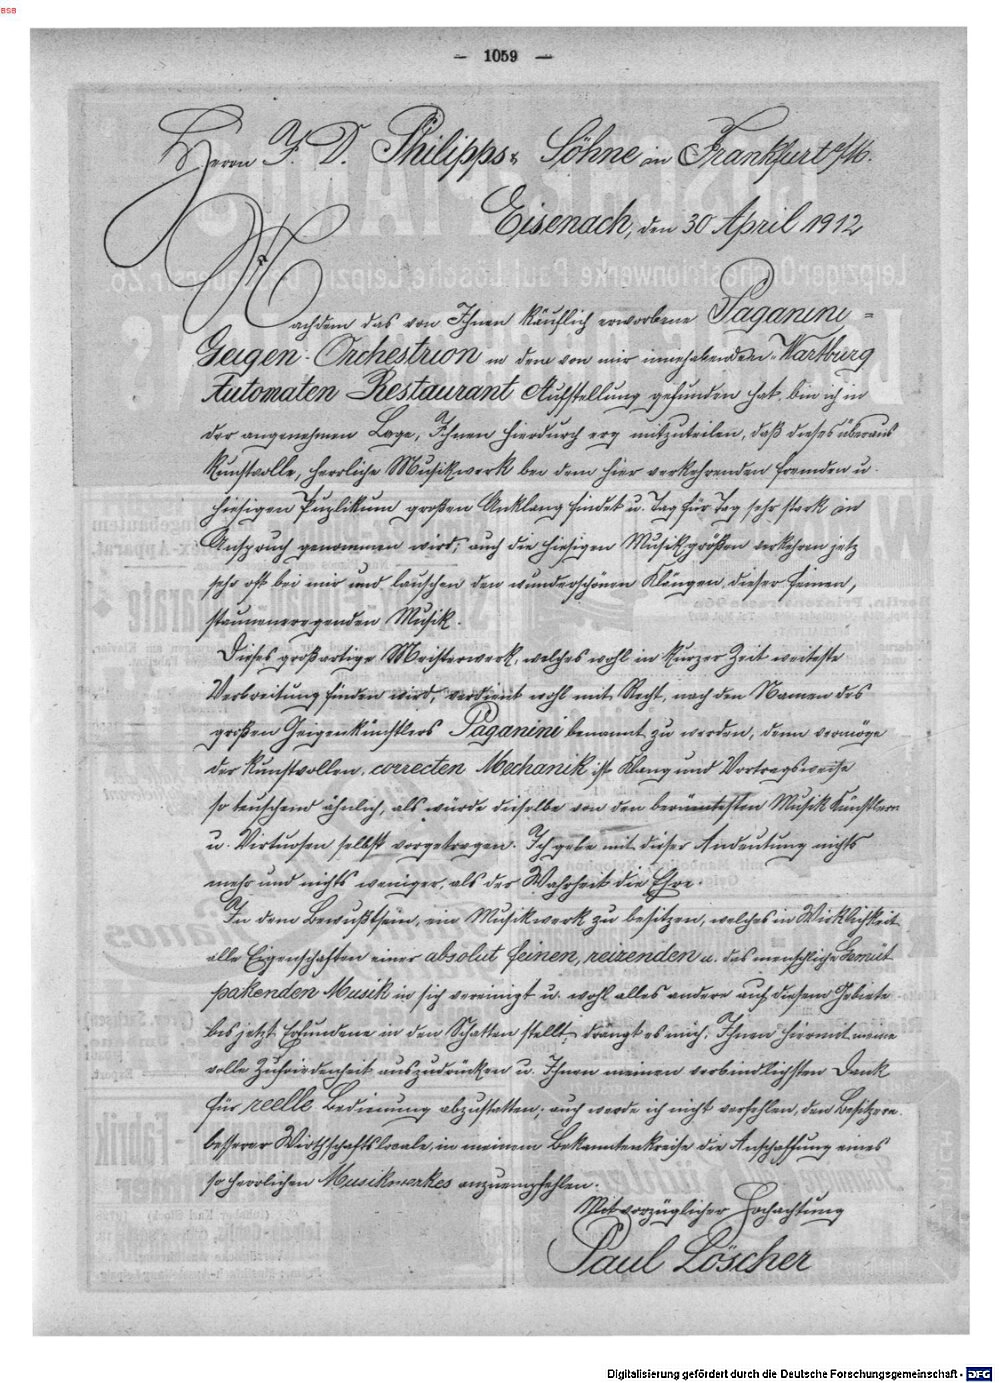 BSB
— 1059 —
Herrn J. D. Philipps & Söhne in Frankfurt a/M.
Eisenach, den 30 April 1912
Nachdem das von Ihnen käuflich erworbene Paganini-
Geigen-Orchestrion in dem von mir innehabenden Wartburg
Automaten Restaurant Aufstellung gefunden hat, bin ich in
der angenehmen Lage, Ihnen hierdurch erg. mitzuteilen, daß dieses überaus
kunstvolle, herrliche Musikwerk bei dem hier verkehrenden fremden u.
hiesigen Puplikum großen Anklang findet u. Tag für Tag sehr stark in
Anspruch genommen wird; auch die hiesigen Musikgrößen verkehren jetz
sehr oft bei mir und lauschen den wunderschönen Klängen dieser feinen,
staunenerregenden Musik.
Dieses großartige Meisterwerk, welches wohl in kurzer Zeit weiteste
Verbreitung finden wird, verdient wohl mit Recht, nach den Namen des
großen Geigenkünstlers Paganini benannt zu werden, denn vermöge
der kunstvollen, correcten Mechanik ist Klang und Vortragsweise
so teuschend ähnlich, als würde dieselbe von den berümtesten Musik Künstlern
u. Virtuosen selbst vorgetragen. Ich gebe mit dieser Andeutung nichts
mehr und nichts weniger, als der Wahrheit die Ehre.
In dem Bewußtsein, ein Musikwerk zu besitzen, welches in Wirklichkeit
alle Eigenschaften einer absolut feinen, reizenden u. das menschliche Gemüt
pakenden Musik in sich vereinigt u. wohl alles andere auf diesem Gebiete
bis jetzt Erfundene in den Schatten stellt, drängt es mich, Ihnen hiermit meine
volle Zufriedenheit auszudrücken u. Ihnen meinen verbindlichsten Dank
für reelle Bedienung abzustatten; auch werde ich nicht verfehlen, den Besitzern
besserer Wirthschaftslocale, in meinem Bekanntenkreise die Anschaffung eines
so herrlichen Musikwerkes anzuempfehlen.
Mit vorzüglicher Hochachtung
Paul Löscher
Digitalisierung gefördert durch die Deutsche Forschungsgemeinschaft - DFG